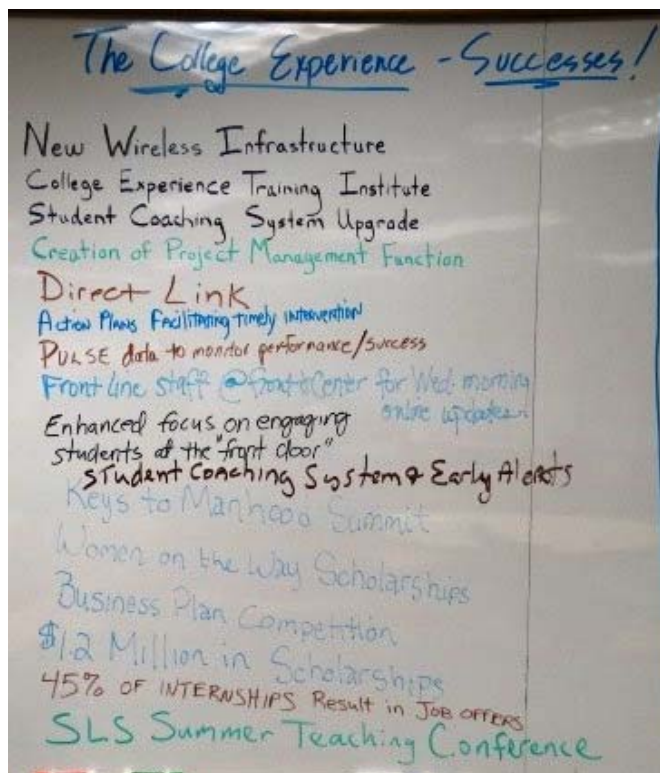 The College Experience - Successes!
New Wireless Infrastructure
College Experience Training Institute
Student Coaching System Upgrade
Creation of Project Management Function
Direct Link
Action Plans Facilitating timely intervention
PULSE data to monitor performance/success
Front line staff @ front & Center for Wed. morning
online updates.
Enhanced focus on engaging
students at the "front door"
Student Coaching System & Early Alerts
Keys to Manhood Summit
Women on the Way Scholarships
Business Plan Competition
$1.2 Million in Scholarships
45% OF INTERNSHIPS Result in JOB OFFERS
SLS Summer Teaching Conference